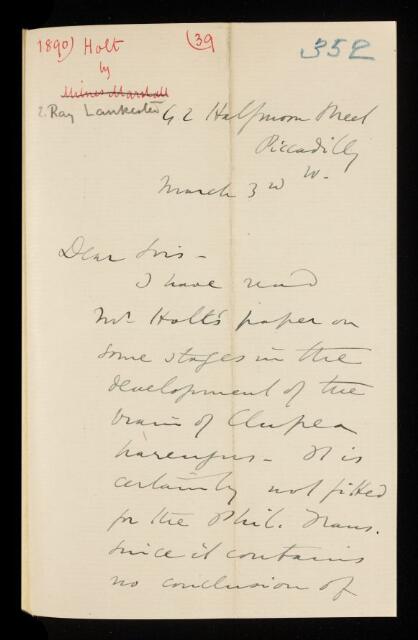 1890) Holt (39 352
by
Milnes Marshall
? Ray Lankester
42 Halfmoon Street
Piccadilly
W.
March 3rd
Dear Sirs -
I have read
Mr Holt's paper on
some stages in the
development of the
brain of Clupea
harengus - It is
certainly not fitted
for the Phil. Trans.
since it contains
no conclusion of